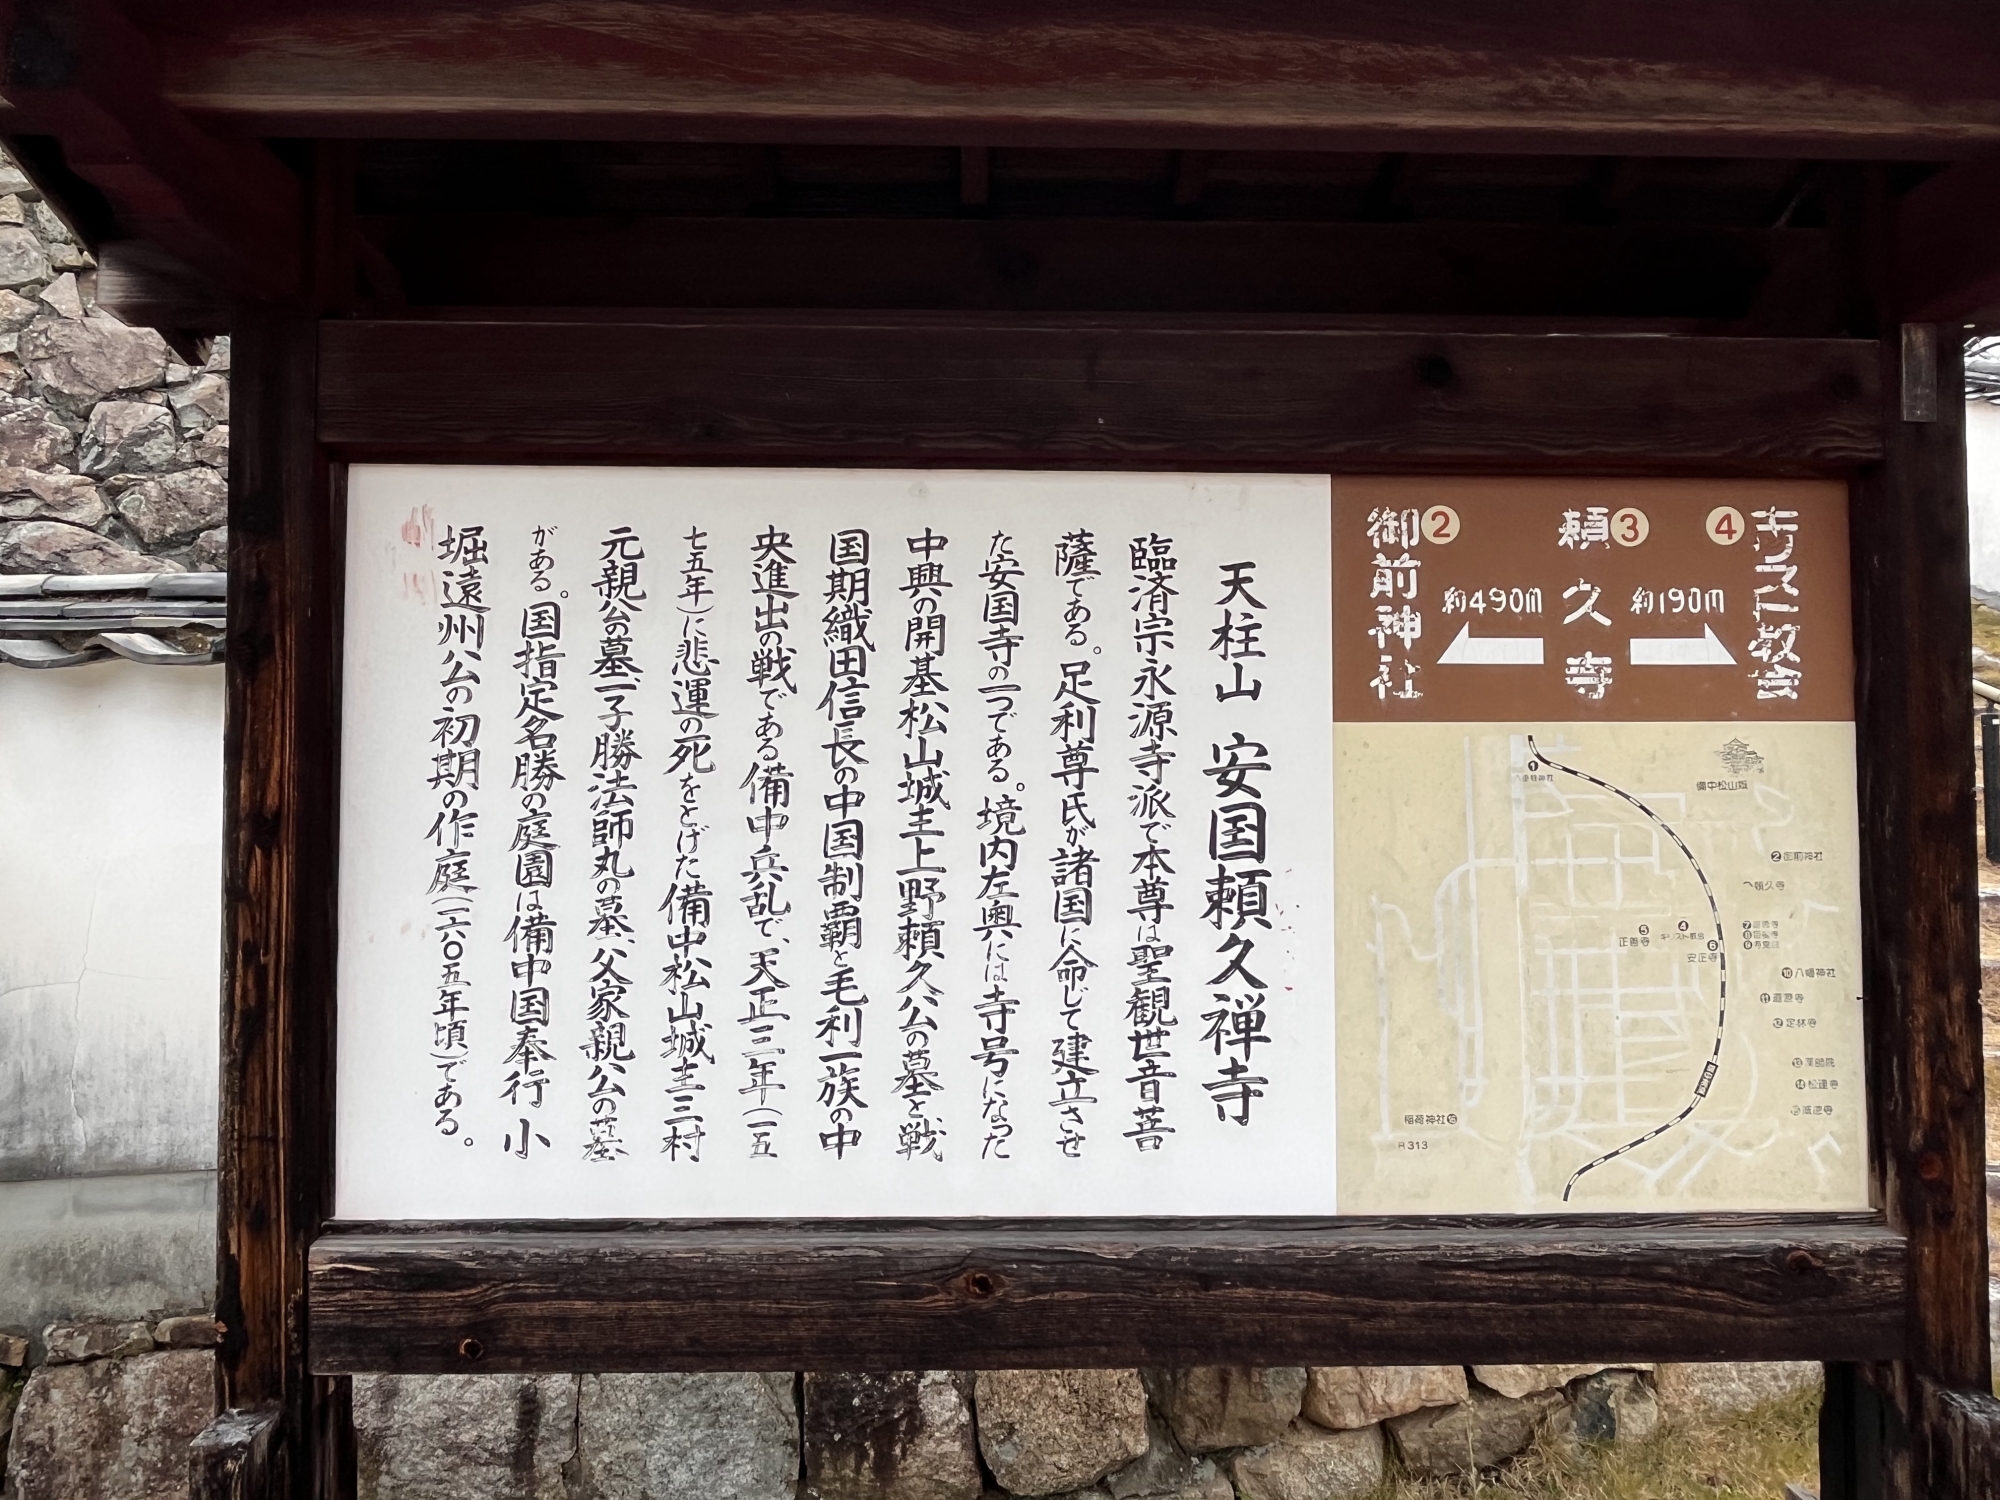 天柱山 安国頼久禅寺
臨済宗永源寺派で本尊は聖観世音菩
薩である。足利尊氏が諸国に命じて建立させ
た安国寺の一つである。境内左奥には寺号になった
中興の開基松山城主上野頼久公の墓と戦
国期織田信長の中国制覇と毛利一族の中
央進出の戦である備中兵乱で、天正三年(一五
七五年)に悲運の死をとげた備中松山城主三村
元親公の墓、子勝法師丸の墓、父家親公の墓
がある。国指定名勝の庭園は備中国奉行 小
堀遠州公の初期の作庭(一六〇五年頃)である。
④キリスト教会
約190m
③頼久寺
約490m
②御前神社
備中松山城
①八重籬神社
②御前神社
頼久寺
④キリスト教会
⑤正善寺
⑥安正寺
⑦
⑧
⑨
⑩八幡神社
⑪道源寺
⑫定林寺
⑬薬師院
⑭松連寺
稲荷神社⑯
R313